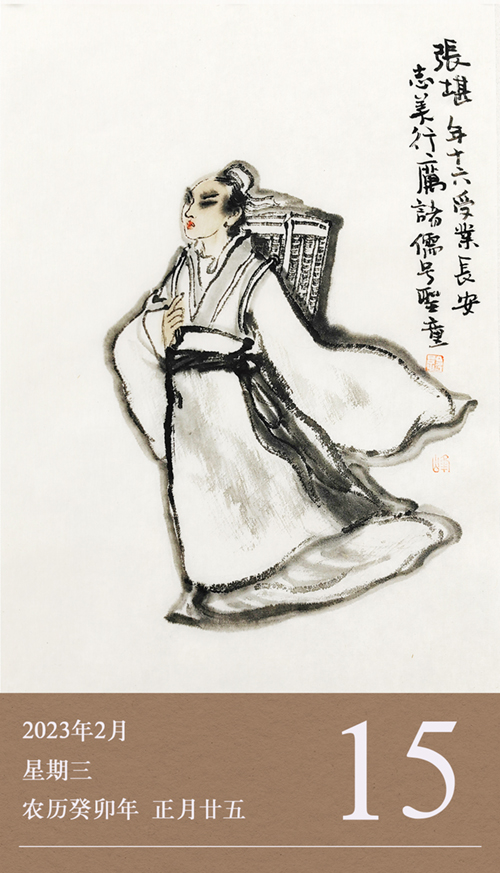 張堪年十六受業長安
志美行厲諸儒号聖童
2023年2月
星期三
农历癸卯年 正月廿五
15